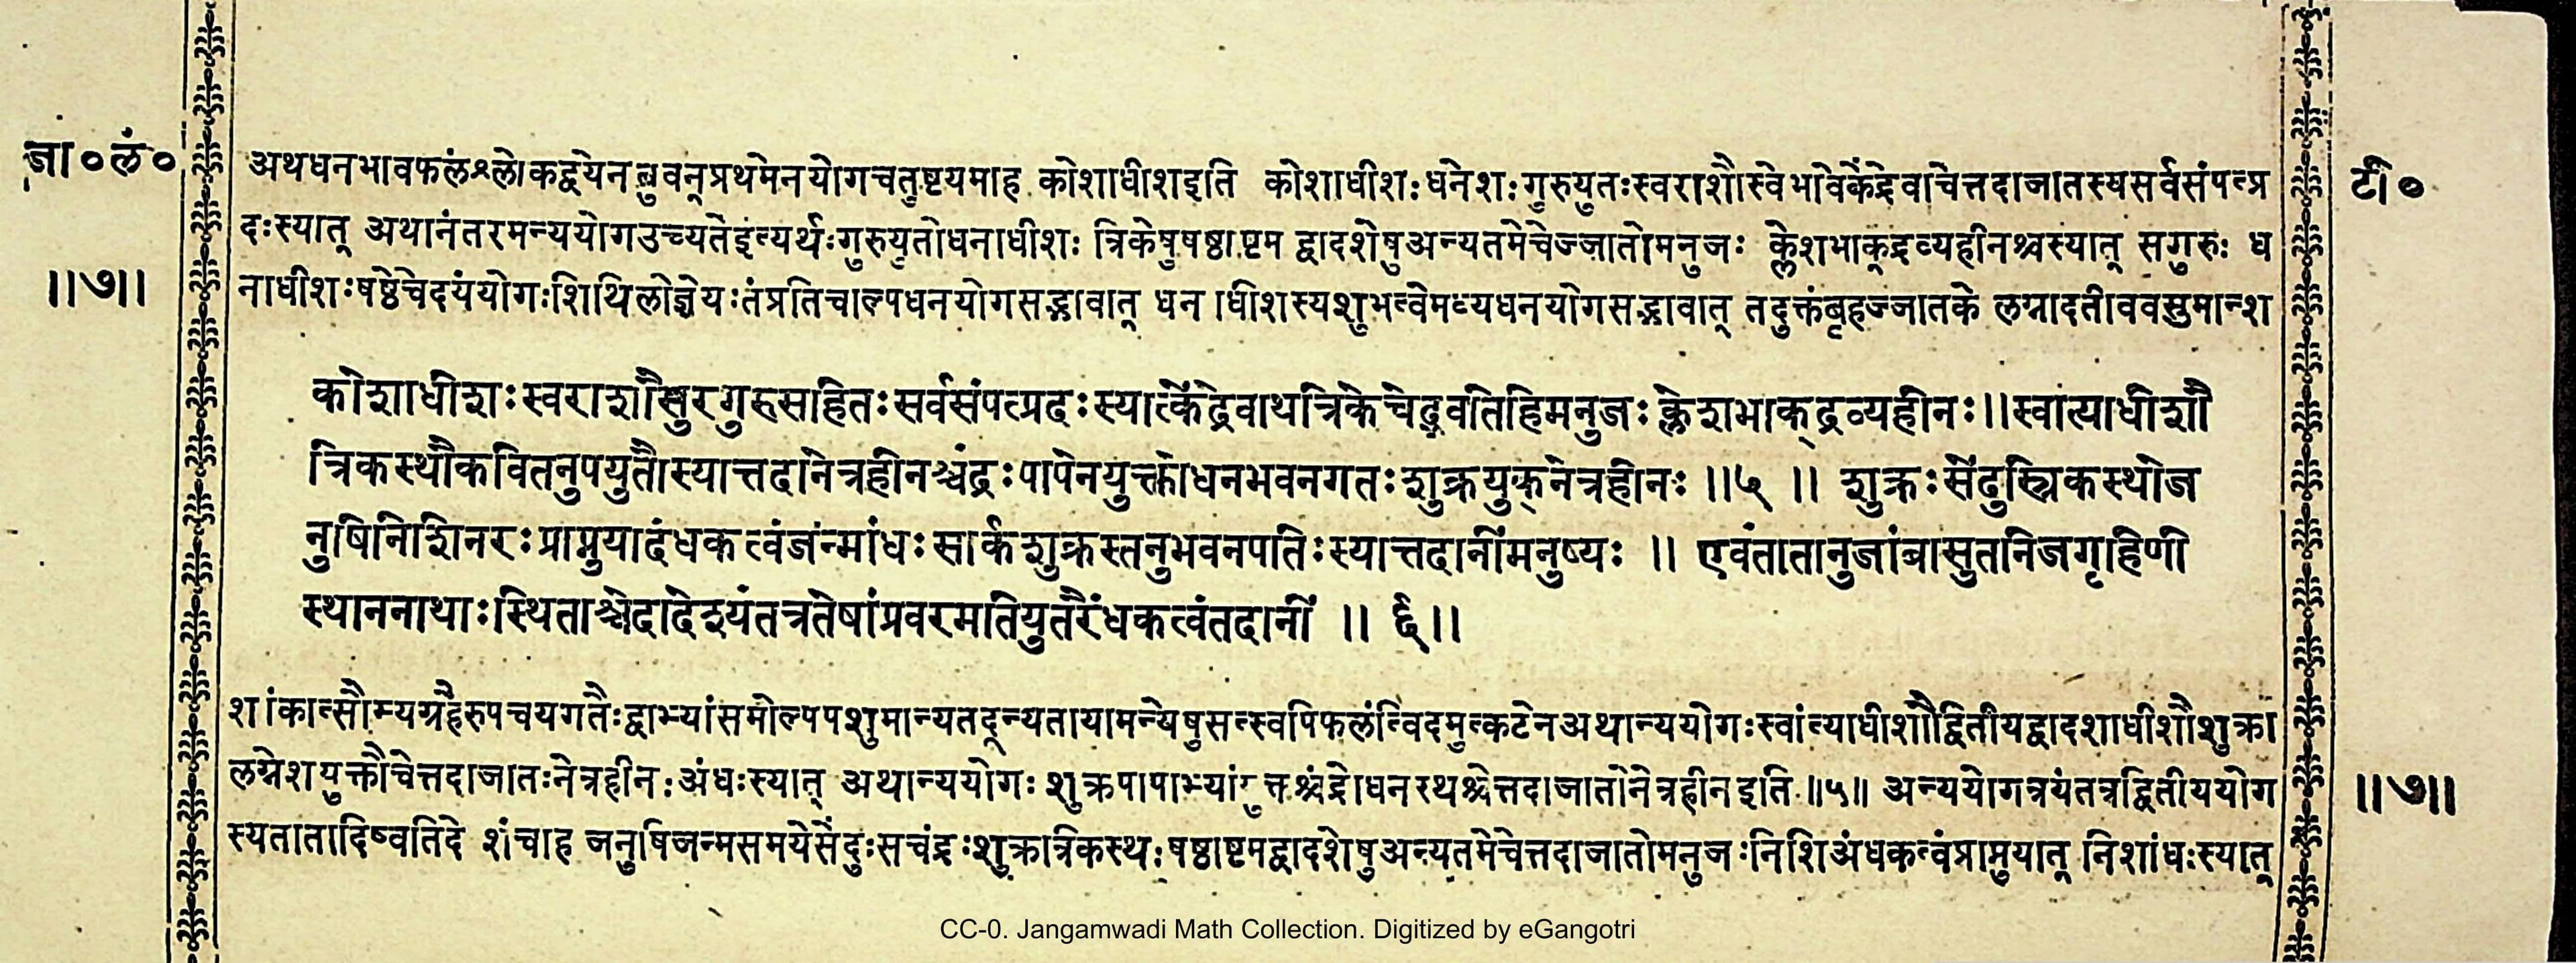 जा०लं०
अथधनभावफलंश्लोकद्वयेनब्रुवन्प्रथमेनयोगचतुष्टयमाह कोशाधीशइति कोशाधीशः धनेशः गुरुयुतःस्वराशौस्वेभावेकेंद्रेवाचेत्तदाजातस्यसर्वसंपत्प्र
टी०
दःस्यात् अथानंतरमन्ययोगउच्यतेइत्यर्थःगुरुयुतोधनाधीशः त्रिकेषुषष्ठाष्टम द्वादशेषुअन्यतमेचेज्जातोमनुजः क्लेशभाक्द्रव्यहीनश्चस्यात् सगुरुः ध
॥७॥
नाधीशःषष्ठेचेदयंयोगःशिथिलोज्ञेयःतंप्रतिचाल्पधनयोगसद्भावात् धन ाधीशस्यशुभत्वेमध्यधनयोगसद्भावात् तदुक्तंबृहज्जातके लग्नादतीववसुमान्श
कोशाधीशःस्वराशौसुरगुरुसहितःसर्वसंपत्प्रदःस्यात्केंद्रेवाथत्रिकेचेद्भवतिहिमनुजःक्लेशभाक्द्रव्यहीनः॥स्वांत्याधीशौ
त्रिकस्थौकवितनुपयुतौस्यात्तदानेत्रहीनश्चंद्रःपापेनयुक्तोधनभवनगतःशुक्रयुक्नेत्रहीनः ॥५ ॥ शुक्रःसेंदुस्त्रिकस्थोज
नुषिनिशिनरःप्राप्नुयादंधकत्वंजंन्मांधःसार्कशुक्रस्तनुभवनपतिःस्यात्तदानींमनुष्यः ॥ एवंतातानुजांबासुतनिजगृहिणी
स्थाननाथाःस्थिताश्चेदादेश्यंतत्रतेषांप्रवरमतियुतैरंधकत्वंतदानीं ॥ ६॥
शांकात्सौम्यग्रहैरुपचयगतैःद्वाभ्यांसमोल्पपशुमान्यतदून्यतायामन्येषुसत्स्वपिफलंत्विदमुत्कटेनअथान्ययोगःस्वांत्याधीशौद्वितीयद्वादशाधीशौशुक्रा
लग्नेशयुक्तौचेत्तदाजातःनेत्रहीनःअंधःस्यात् अथान्ययोगः शुक्रपापाभ्यांयुक्तश्चंद्रोधनस्थश्चेत्तदाजातोनेत्रहीनइति ॥५॥ अन्ययोगत्रयंतत्रद्वितीययोग
॥७॥
स्यतातादिष्वतिदे शंचाह जनुषिजन्मसमयेसेंदुःसचंद्रःशुक्रात्रिकस्थःषष्ठाष्टमद्वादशेषुअन्यतमेचेत्तदाजातोमनुजःनिशिअंधकत्वंप्राप्नुयात् निशांधःस्यात्
CC-0. Jangamwadi Math Collection. Digitized by eGangotri